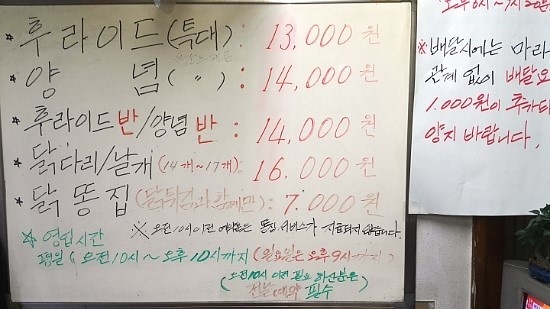 * 후라이드(특대): 13,000원
* 양 념(〃): 14,000원
* 후라이드반/양념반: 14,000원
* 닭다리/날개(14개~17개) 16.000원
* 닭똥집(닭튀김과 함께만): 7.000원
※ 오전 10시 이전 똥집 서비스가 지급되지 않습니다.
☆ 영업시간
평일(오전10시~오후10시까지 (일요일은 오후9시까지)
(오전10시 이전 필요하신분은
전날 예약 필수
오후 6시~7시20분
※ 배달시에는 마리
관계 없이 배달
1.000원이 추가
양지 바랍니다.